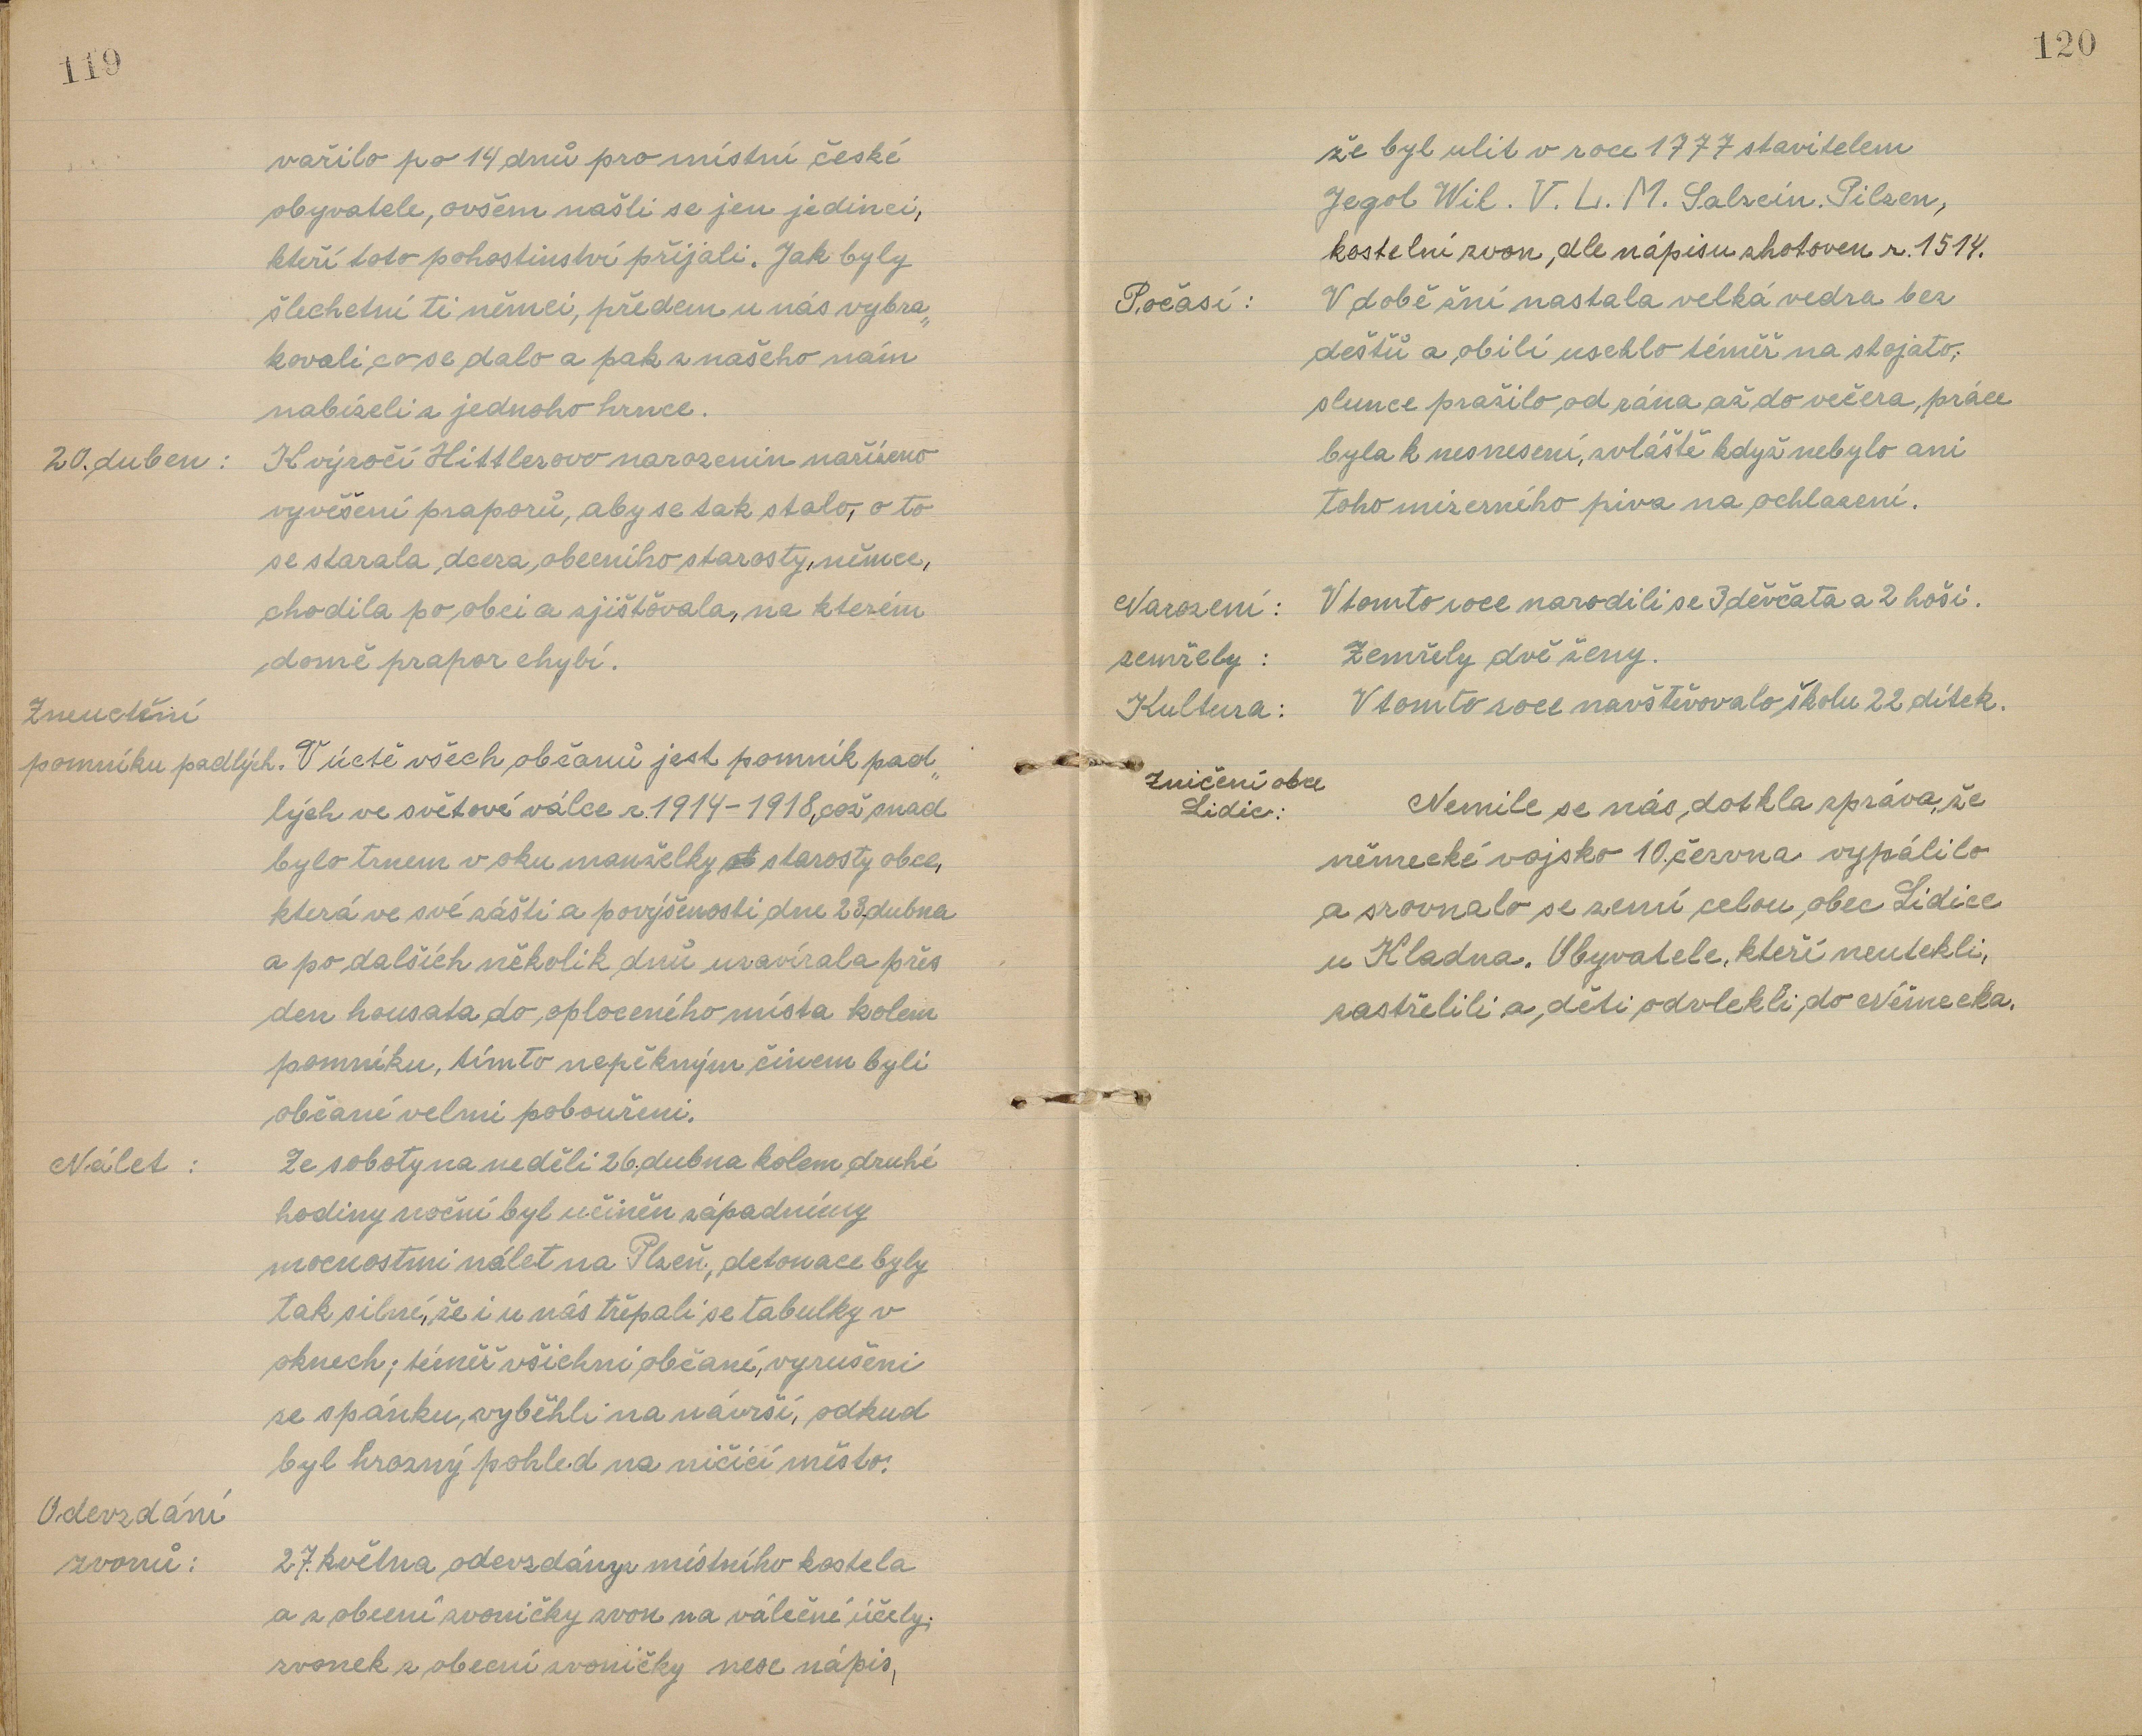 119
vařilo po 14 dnů pro místní české
obyvatele, ovšem našli se jen jedinci,
kteří toto pohostinství přijali. Jak byly
šlechetní ti němci, předem u nás vybra„
kovali, co se dalo a pak z našeho nám
nabízeli z jednoho hrnce.
20. duben: K výročí Hittlerovo narozenin nařízeno
vyvěšení praporů, aby se tak stalo, o to
se starala dcera obecního starosty, němce,
chodila po obci a zjišťovala, na kterém
domě prapor chybí.
Zneuctění
pomníku padlých. V úctě všech občanů jest pomník pad„
lých ve světové válce r. 1914-1918, což snad
bylo trnem v oku manželky starosty obce,
která ve své zášti a povýšenosti dne 23. dubna
a po dalších několik dnů uzavírala přes
den housata do oploceného místa kolem
pomníku, tímto nepěkným činem byli
občané velmi pobouřeni.
Nálet: Ze soboty na neděli 26. dubna kolem druhé
hodiny noční byl učiněn západnímy
mocnostmi nálet na Plzeň, detonace byly
tak silné, že i u nás třepali se tabulky v
oknech; téměř všichni občané, vyrušeni
ze spánku, vyběhli na návrší, odkud
byl hrozný pohled na ničící město.
Odevzdání
zvonů: 27. května odevzdány z místního kostela
a z obecní zvoničky zvon na válečné účely;
zvonek z obecní zvoničky nese nápis,
120
že byl ulit v roce 1777 stavitelem
Jegol Wil. V. L. M. Salzein. Pilzen,
kostelní zvon, dle nápisu zhotoven r. 1514.
Počasí: V době žní nastala velká vedra bez
deštů a obilí uschlo téměř na stojato,
slunce pražilo od rána až do večera, práce
byla k nesnesení, zvláště když nebylo ani
toho mizerného piva na ochlazení.
Narození: V tomto roce narodili se 3 děvčata a 2 hoši.
zemřely: Zemřely dvě ženy.
Kultura: V tomto roce navštěvovalo školu 22 dítek.
Zničení obce
Lidic: Nemile se nás dotkla zpráva, že
německé vojsko 10. června vypálilo
a srovnalo se zemí celou obec Lidice
u Kladna. Obyvatele, kteří neutekli,
zastřelili a děti odvlekli do Německa.